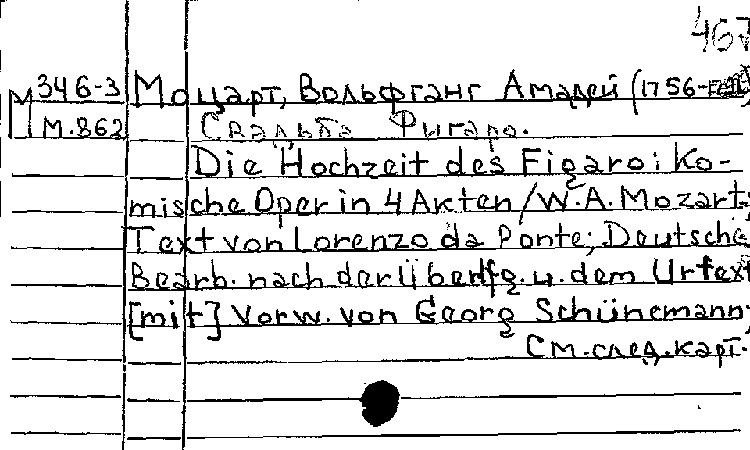 467
М 346-3 Моцарт, Вольфганг Амадей (1756-
М.862 Свадьба Фигаро.
Die Hochzeit des Figaro: Ko-
mische Oper in 4 Akten / W.A. Mozart;
Text von Lorenzo da Ponte; Deutsche
Bearb. nach der Überlfg. u. dem Urtext
[mit] Vorw. von Georg Schünemann;
См. след. карт.